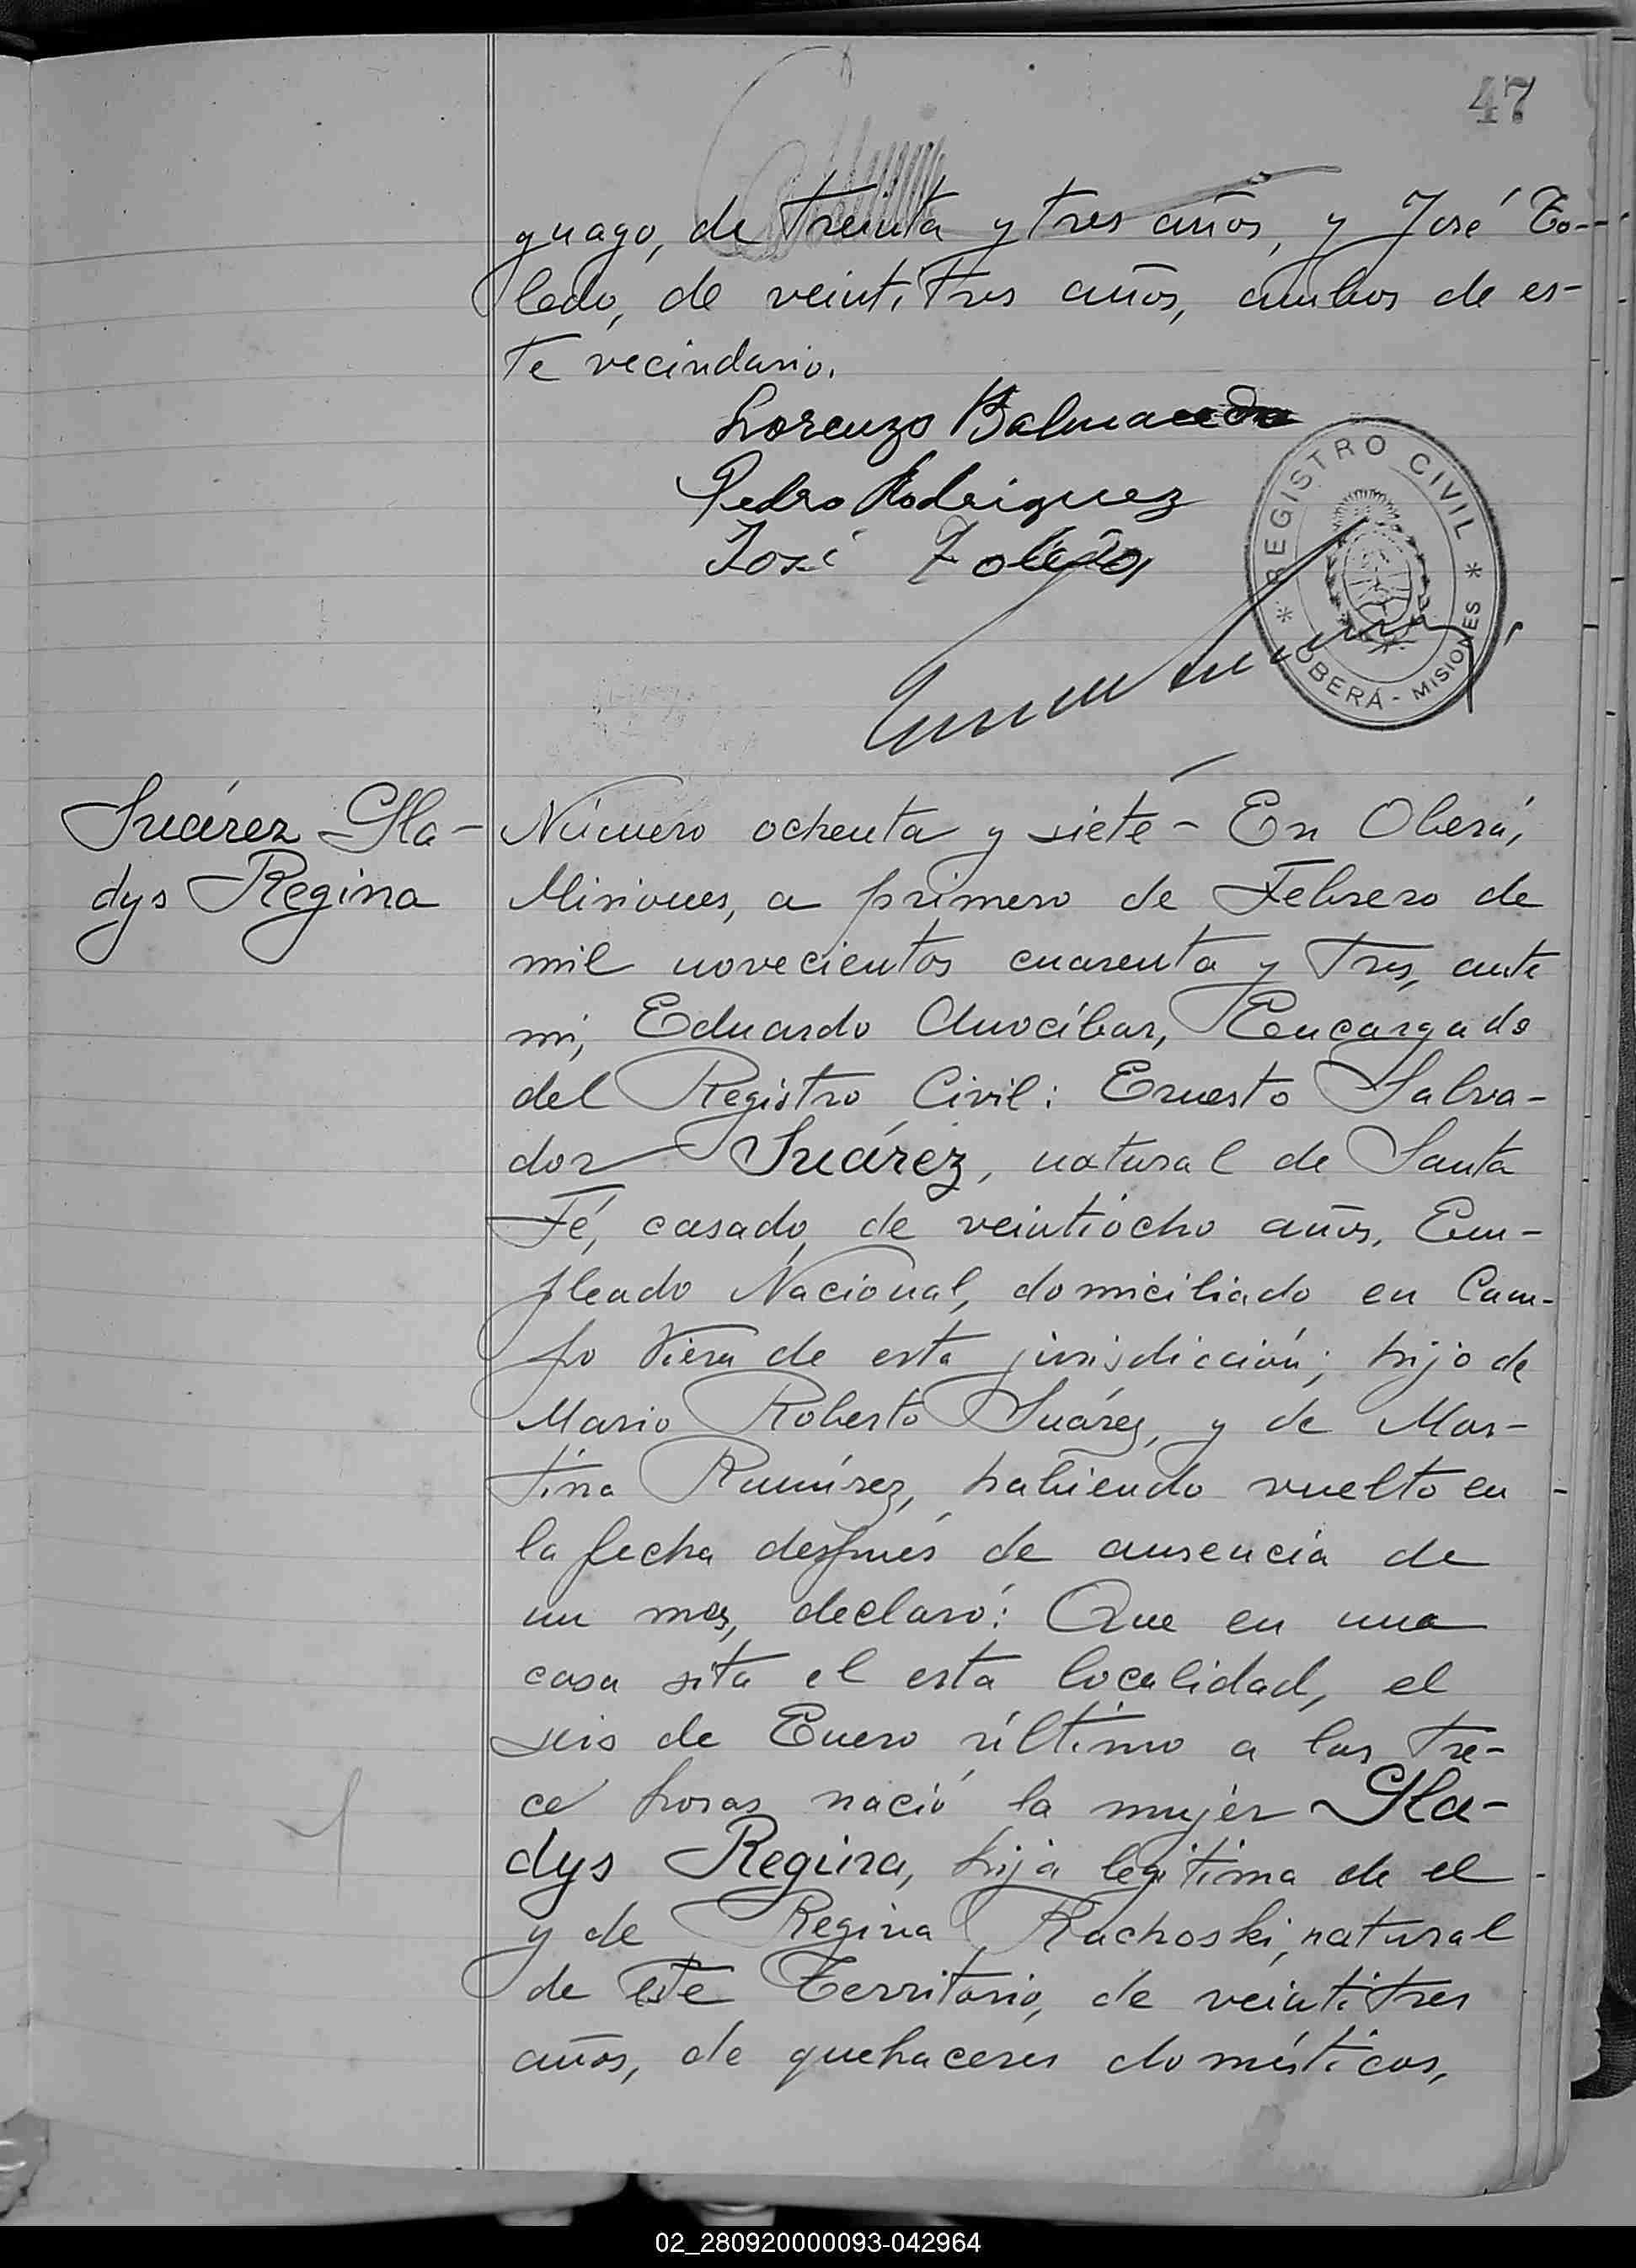 47
guayo, de treinta y tres años, y José To-
ledo, de veintitres años, ambos de es-
te vecindario.
Lorenzo Balmaceda
Pedro Rodriguez
José Toledo
* REGISTRO CIVIL *
OBERÁ - MISIONES
Suárez Gla-
dys Regina
Número ochenta y siete - En Oberá,
Misiones, a primero de Febrero de
mil novecientos cuarenta y tres, ante
mi, Eduardo Anocíbar, Encargado
del Registro Civil: Ernesto Salva-
dor Suárez, natural de Santa
Fé, casado, de veintiocho años, Em-
pleado Nacional, domiciliado en Cam-
po Viera de esta jurisdicción; hijo de
Mario Roberto Suárez, y de Mar-
tina Ramírez, habiendo vuelto en
la fecha después de ausencia de
un mes, declaró: Que en una
casa sita el esta localidad, el
seis de Enero último a las tre-
ce horas nació la mujer Gla-
dys Regina, hija legítima de el
y de Regina Rachoski, natural
de este Territorio, de veintitres
años, de quehaceres domésticos,
02_280920000093-042964